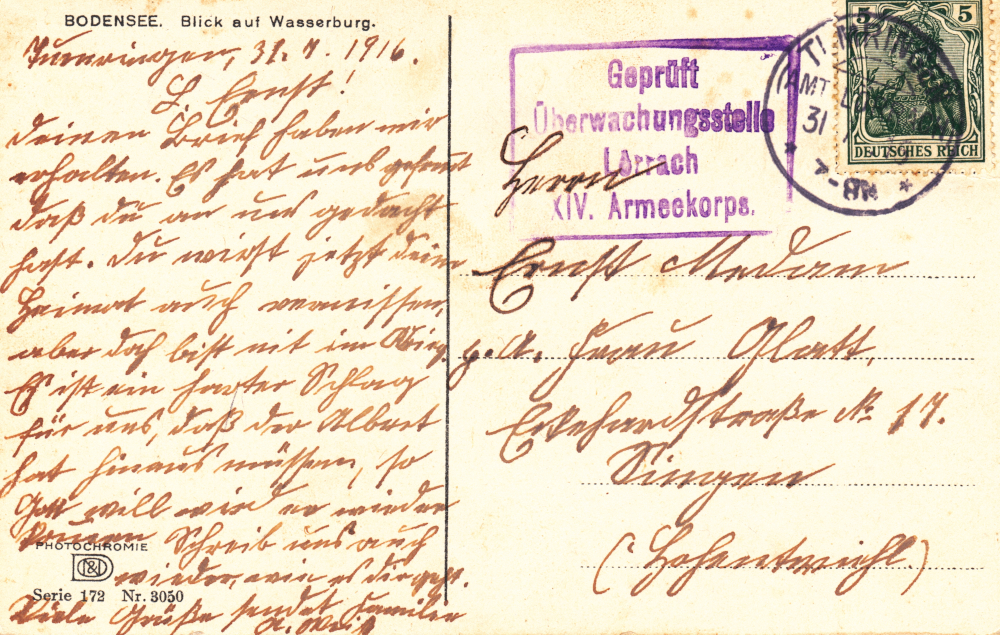 BODENSEE. Blick auf Wasserburg.
Tumringen, 31.7.1916.
L. Ernst!
Deinen Brief haben wir
erhalten. Es hat uns gefreut
daß du an uns gedacht
hast. Du wirst jetzt deine
Heimat auch vermissen,
aber doch bist nit im Krieg.
Es ist ein harter Schlag
für uns, daß der Albert
hat hinaus müssen, so
Gott will wird er wieder
kommen Schreib uns auch
wieder, wie es dir geht.
Viele Grüße sendet Familie
A. Weiß
PHOTOCHROMIE
Serie 172 Nr. 3050
Geprüft
Überwachungsstelle
Lörrach
XIV. Armeekorps.
5 5
DEUTSCHES REICH
TUMRINGEN
AMT
31
8-
Herrn
Ernst Medam
p. A. Frau Glatt.
Ekkehardstraße No 17.
Singen
(Hohentwiehl)